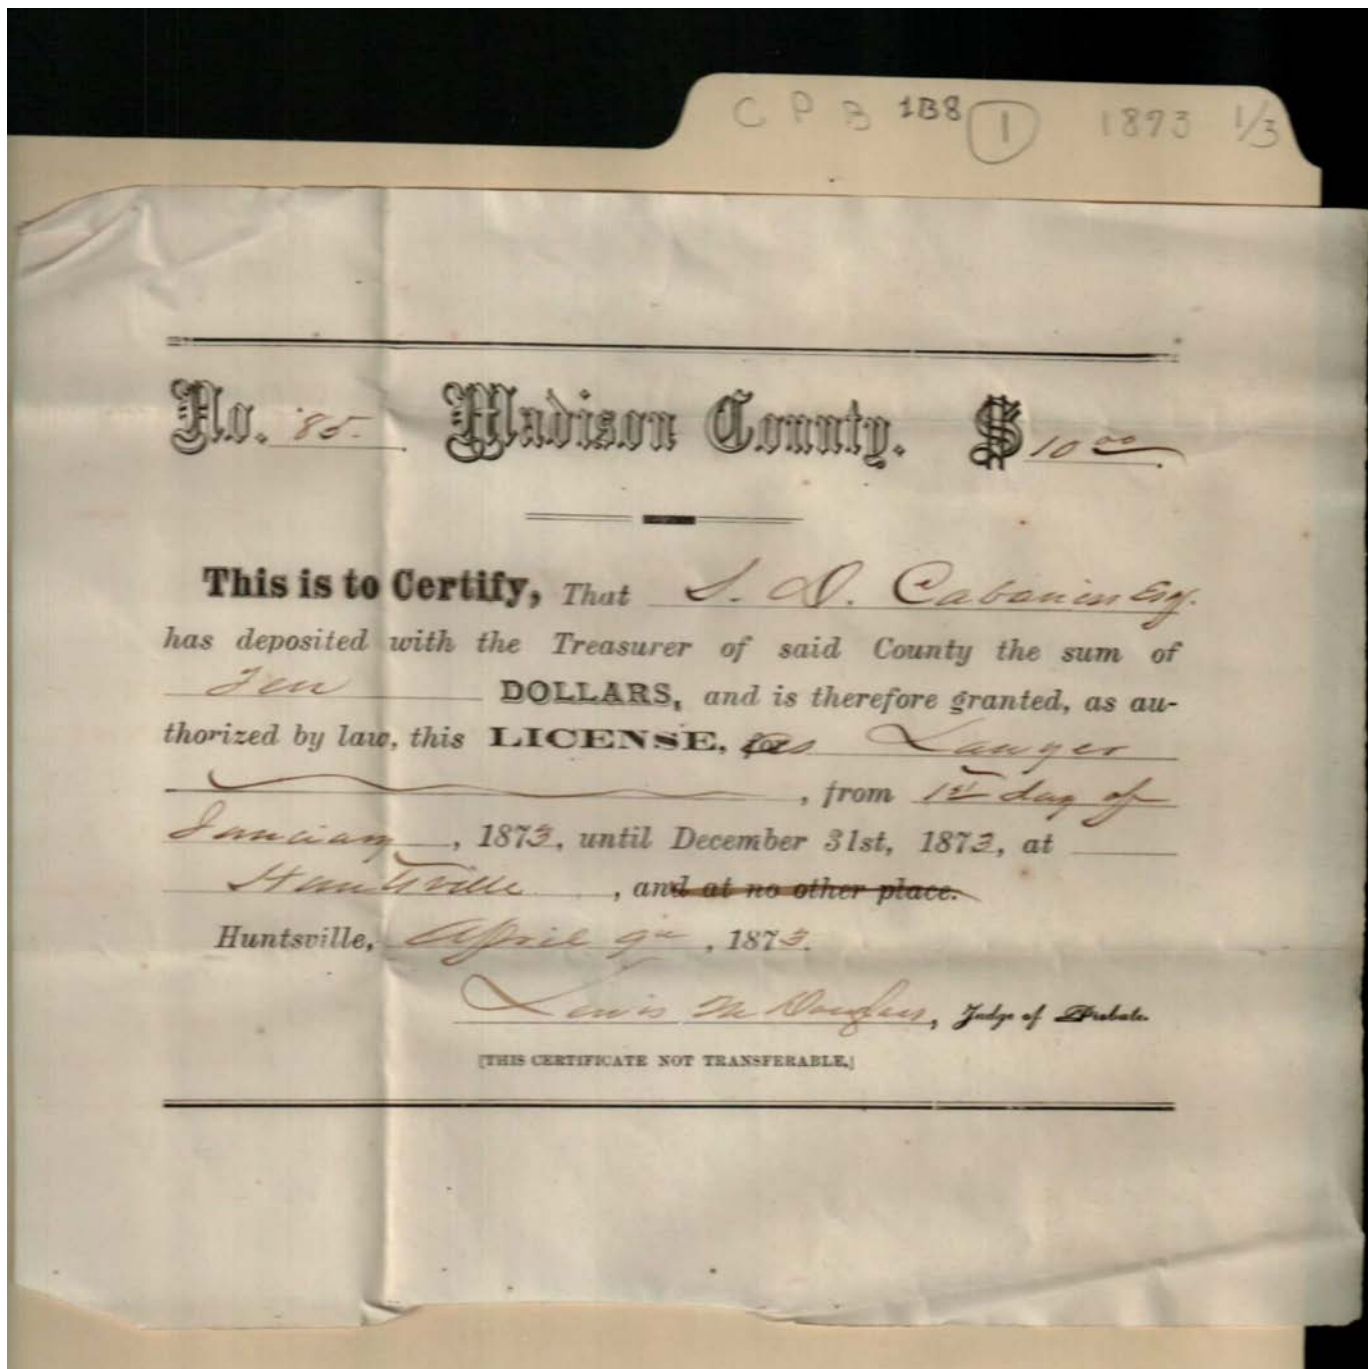 C P B 1B8 1 1873 1/3
No. 85. Madison County. $ 10 00
This is to Certify, That S. D. Cabaniss Esq.
has deposited with the Treasurer of said County the sum of
Ten DOLLARS, and is therefore granted, as au-
thorized by law, this LICENSE, as Lawyer
, from 1st day of
January, 1873, until December 31st, 1873, at
Huntsville, and at no other place.
Huntsville, April 9th, 1873.
Lewis M Douglass, Judge of Probate.
[THIS CERTIFICATE NOT TRANSFERABLE.]